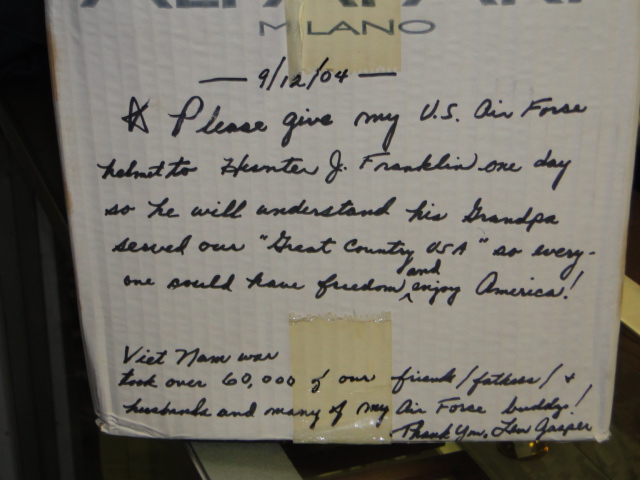 MILANO
— 9/12/04 —
☆ Please give my U.S. Air Forse
helmet to Hunter J. Franklin one day
so he will understand his Grandpa
served our "Great Country USA" so every-
one could have freedom and enjoy America!
Viet Nam war
took over 60,000 of our friends/fathers/+
husbands and many of my Air Forse buddys!
Thank You, Len Gasper